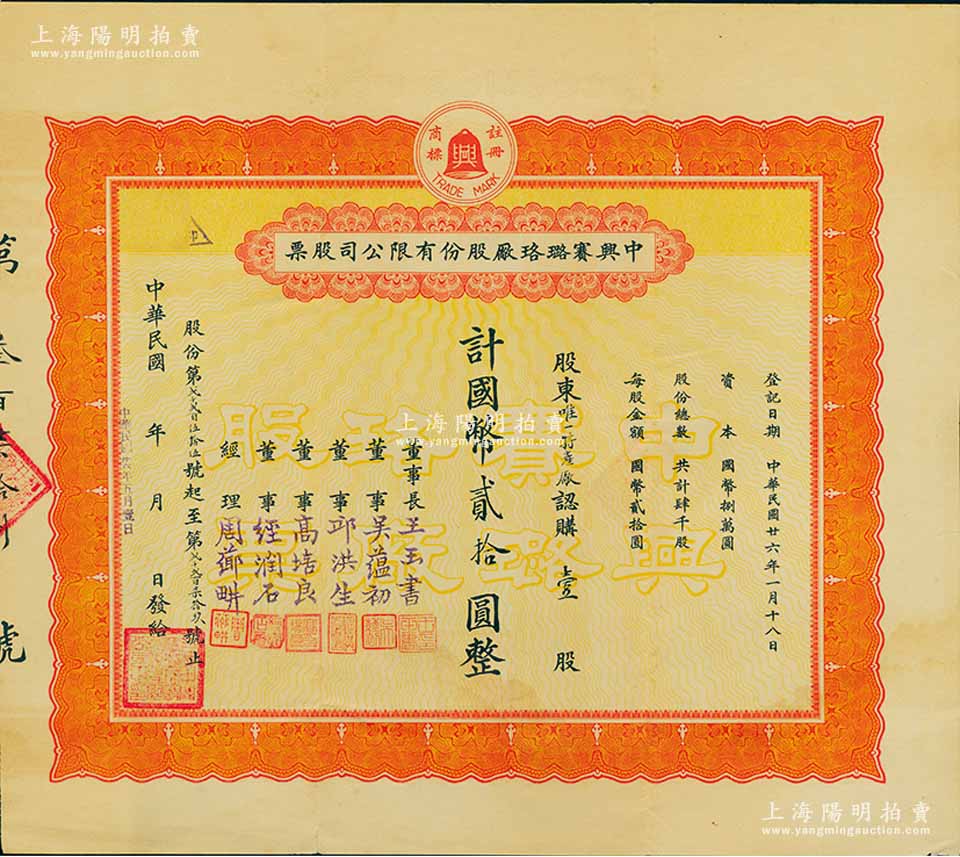 上海陽明拍賣
www.yangmingauction.com
註冊
商標
興
TRADE MARK
中興賽璐珞廠股份有限公司股票
登記日期 中華民國廿六年一月十八日
資本 國幣捌萬圓
股份總數 共計肆千股
每股金額 國幣貳拾圓
股東唯一行產廠認購 壹 股
計國幣貳拾圓整
董事長 王玉書
董事 吳蘊初
董事 邱洪生
董事 高培良
董事 經潤石
經理 周薌畊
號起至第
號止
中華民國 年 月 日發給
中興賽璐珞廠股
上海陽明拍賣
www.yangmingauction.com
上海陽明拍賣
www.yangmingauction.com